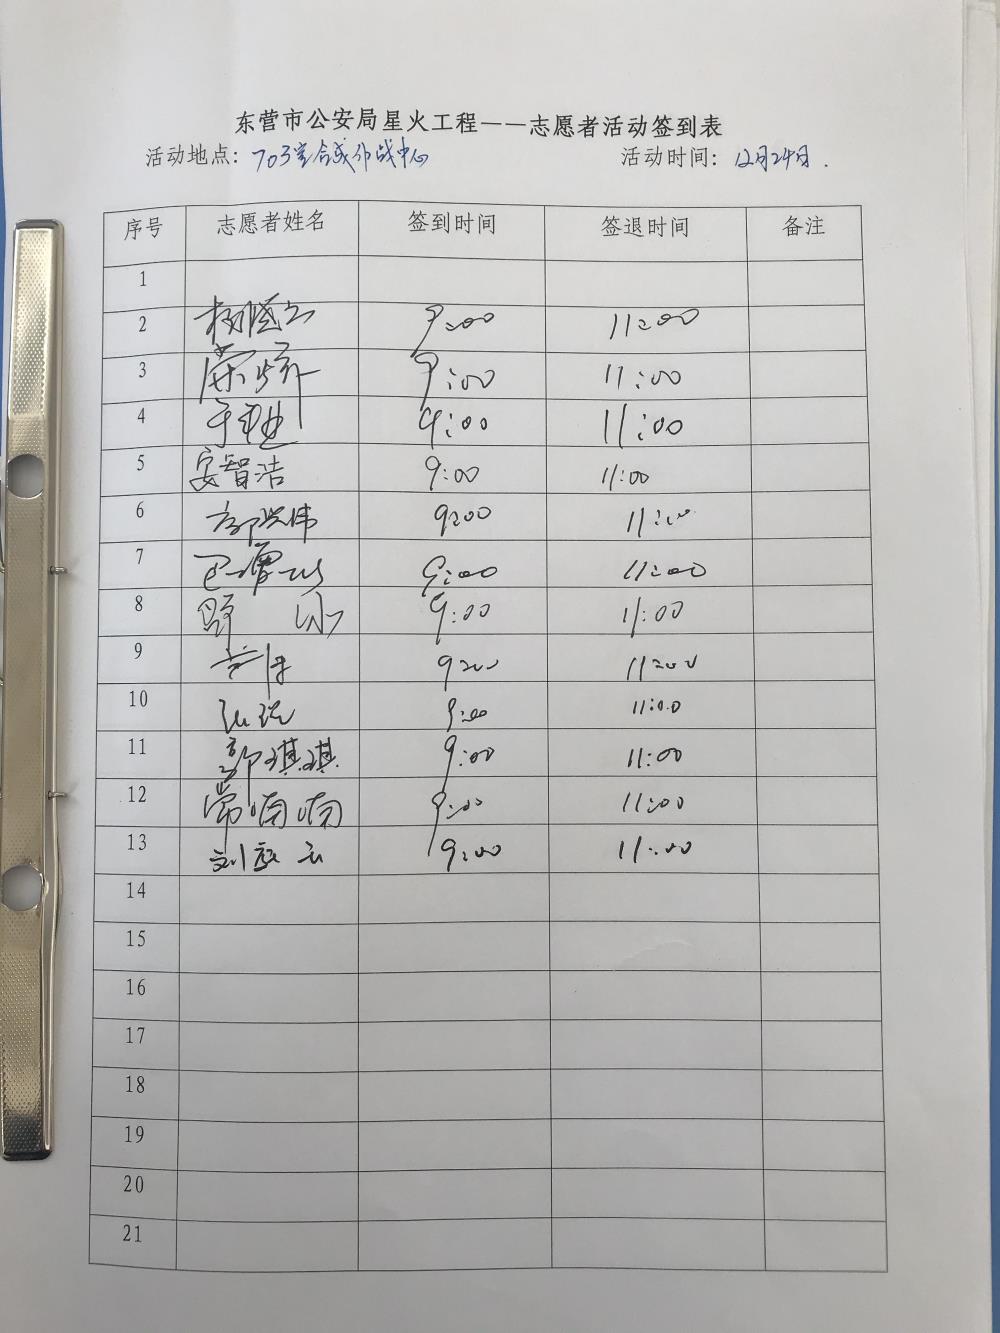 东营市公安局星火工程——志愿者活动签到表
活动地点：703室合成作战中心 活动时间：12月24日.
序号 志愿者姓名 签到时间 签退时间 备注
1
2 9:00 11:00
3 9:00 11:00
4 9:00 11:00
5 安智浩 9:00 11:00
6 9:00 11:00
7 9:00 11:00
8 9:00 11:00
9 9:00 11:00
10 9:00 11:00
11 郭琪琪 9:00 11:00
12 常喃喃 9:00 11:00
13 9:00 11:00
14
15
16
17
18
19
20
21